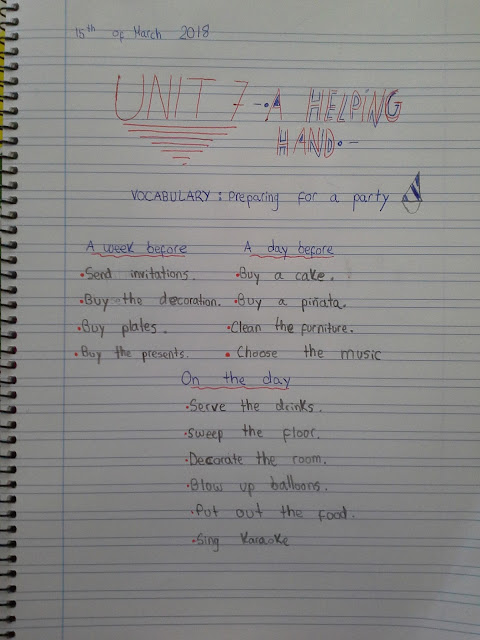 15th of March 2018
UNIT 7 -· A HELPING
HAND· -
VOCABULARY: Preparing for a party
A week before A day before
•Send invitations. •Buy a cake.
•Buy the decoration. •Buy a piñata.
•Buy plates. •Clean the furniture.
•Buy the presents. •Choose the music
On the day
•Serve the drinks.
•Sweep the floor.
•Decorate the room.
•Blow up balloons.
•Put out the food.
•Sing Karaoke